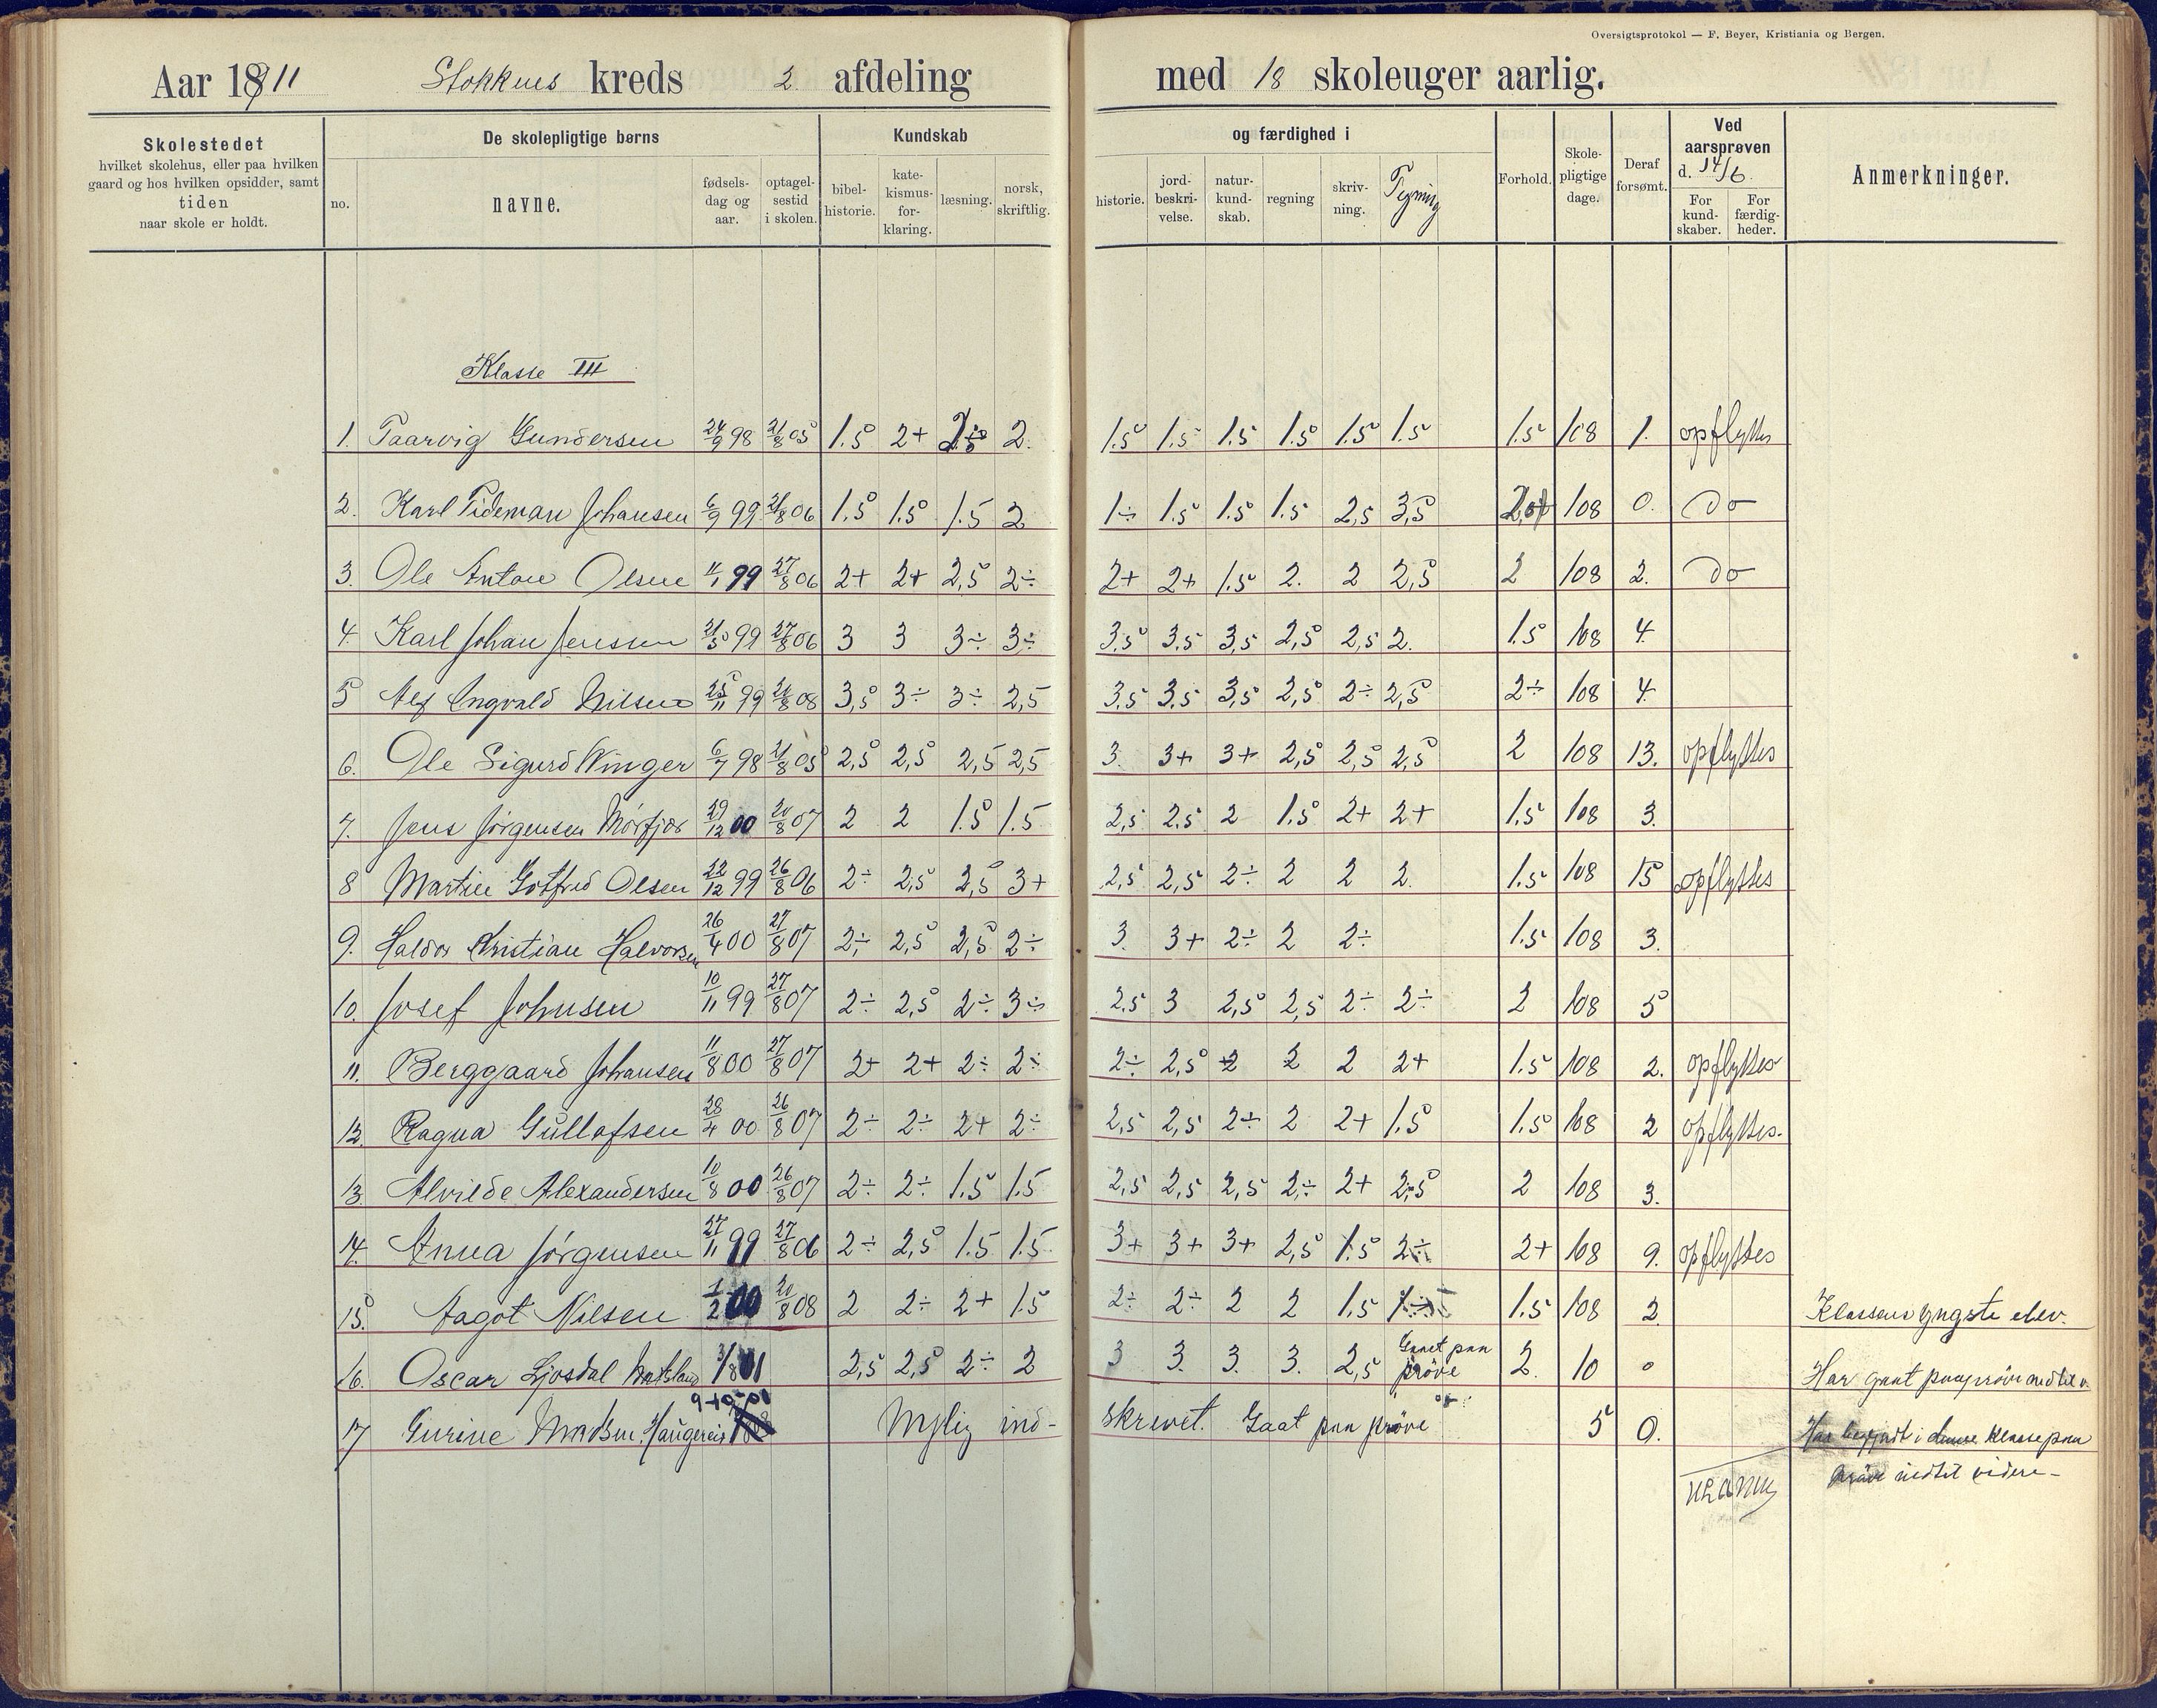 Oversigtsprotokol — F. Beyer, Kristiania og Bergen.
Aar 1911 Stokkens kreds 2. afdeling med 18 skoleuger aarlig.
Skolestedet
hvilket skolehus, eller paa hvilken
gaard og hos hvilken opsidder, samt
tiden
naar skole er holdt.
De skolepligtige børns
no.
navne.
fødsels-
dag og
aar.
optagel-
sestid
i skolen.
Kundskab
bibel-
historie.
kate-
kismus-
for-
klaring.
læsning.
norsk,
skriftlig.
og færdighed i
historie.
jord-
beskri-
velse.
natur-
kund-
skab.
regning
skriv-
ning.
Tegning
Forhold.
Skole-
pligtige
dage.
Deraf
forsømt.
Ved
aarsprøven
d. 14/6.
For
kund-
skaber.
For
færdig-
heder.
Anmerkninger.
Klasse III
1. Taarvig Gundersen 24/9 98 21/8 05 1.5 2+ 2. 1.5 1.5 1.5 1.5 1.5 1.5 1.5 108 1. opflyttes
2. Karl Tideman Johansen 6/9 99 21/8 06 1.5 1.5 1.5 2 1÷ 1.5 1.5 1.5 2,5 3,5 108 0. do
3. Ole Anton Olsen 11/1 99 27/8 06 2+ 2+ 2,5 2÷ 2+ 2+ 1.5 2. 2 2,5 2 108 2. do
4. Karl Johan Jenssen 21/5 99 27/8 06 3 3 3÷ 3÷ 3,5 3,5 3,5 2,5 2,5 2. 1.5 108 4.
5 Alf Ingvald Nilsen 25/11 99 24/8 08 3,5 3÷ 3÷ 2,5 3,5 3,5 3,5 2,5 2÷ 2,5 2÷ 108 4.
6. Ole Sigurd Winger 6/7 98 21/8 05 2,5 2,5 2,5 2,5 3. 3+ 3+ 2,5 2,5 2,5 2 108 13. opflyttes
7. Jens Jörgensen Mörfjær 29/12 00 20/8 07 2 2 1.5 1.5 2,5 2,5 2 1.5 2+ 2+ 1.5 108 3.
8 Martin Gotfred Olsen 22/12 99 26/8 06 2÷ 2,5 2,5 3+ 2,5 2,5 2÷ 2 2 2. 1.5 108 15 opflyttes
9. Haldor Kristian Halvorsen 26/4 00 27/8 07 2÷ 2,5 2,5 2÷ 3. 3+ 2÷ 2 2÷ 1.5 108 3.
10. Josef Johnsen 10/11 99 27/8 07 2÷ 2,5 2÷ 3÷ 2,5 3 2,5 2,5 2÷ 2÷ 2 108 5
11. Berggaard Johansen 11/8 00 27/8 07 2+ 2+ 2÷ 2÷ 2÷ 2,5 2 2 2 2+ 1.5 108 2. opflyttes
12. Ragna Gullofsen 28/4 00 26/8 07 2÷ 2÷ 2+ 2÷ 2,5 2,5 2÷ 2 2+ 1.5 1.5 108 2 opflyttes.
13. Alvilde Alexandersen 10/8 00 26/8 07 2÷ 2÷ 1.5 1.5 2,5 2,5 2,5 2÷ 2+ 2,5 2 108 3.
14. Anna Jörgensen 27/11 99 27/8 06 2÷ 2,5 1.5 1.5 3+ 3+ 3+ 2,5 1.5 2÷ 2+ 108 9. opflyttes
15. Aagot Nilsen 1/2 00 20/8 08 2 2÷ 2+ 1.5 2÷ 2÷ 2 2 1.5 1.5 108 2. Klassens yngste elev.
16. Oscar Ljosdal 3/8 01 2,5 2,5 2÷ 2 3 3. 3. 3. 2,5 Gaaet paa pröve 2. 10 0 Har gaat paa pröve indtil v.
17 Gurine Madsen 9+10-01 Nylig ind- skrevet. Gaat paa pröve 5 0. Har begyndt i denne klasse paa
pröve indtil videre-